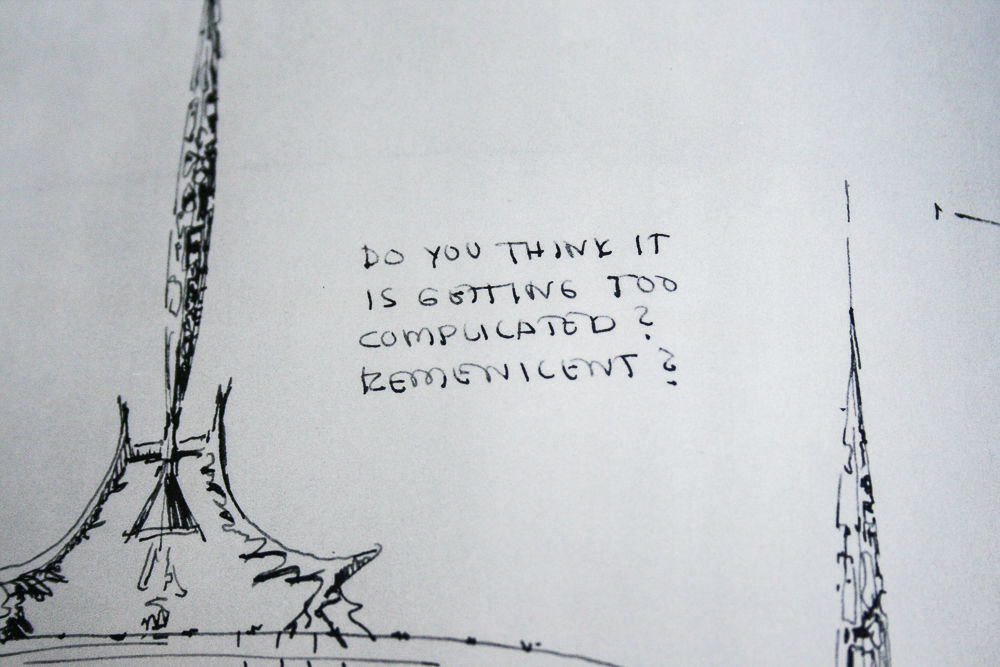 DO YOU THINK IT
IS GETTING TOO
COMPLICATED?
REMENICENT?